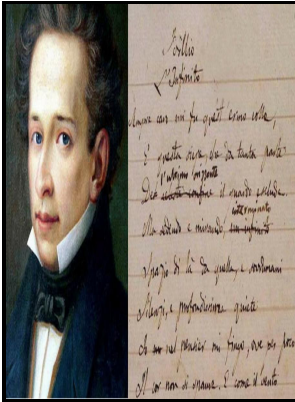 Idillio
L'Infinito
Sempre caro mi fu quest'ermo colle,
E questa siepe, che da tanta parte
l'ultimo orizzonte
Del il guardo esclude.
interminato
Ma sedendo e mirando,
Spazio di là da quella, e sovrumani
Silenzi, e profondissima quiete
Io nel pensier mi fingo, ove per poco
Il cor non si spaura. E come il vento